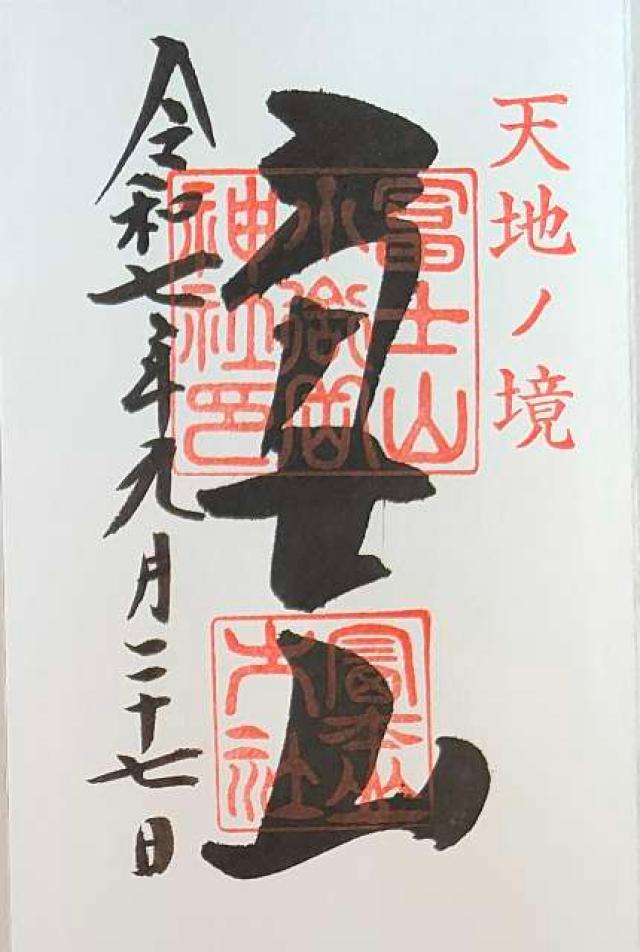 天地ノ境
富士山
富士山
小御岳
神社印
令和七年九月二十七日